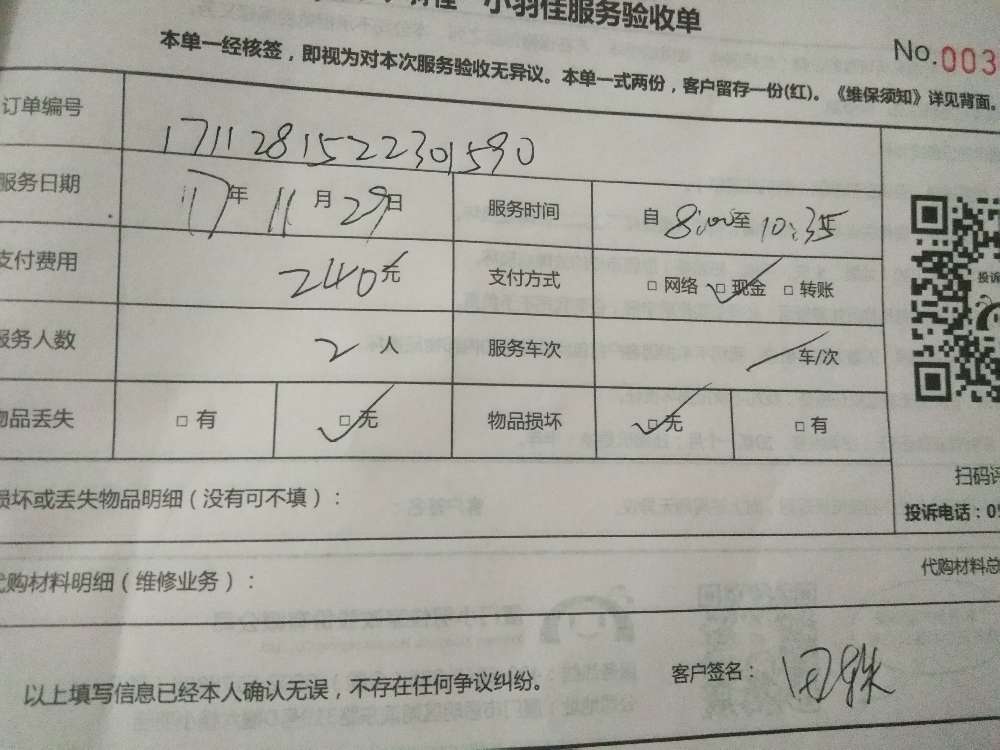 小羽佳服务验收单
No.003
本单一经核签，即视为对本次服务验收无异议。本单一式两份，客户留存一份(红)。《维保须知》详见背面。
订单编号 1711281522301590
服务日期 17年 11月 29日 服务时间 自 8:00至 10:35
支付费用 240元 支付方式 □ 网络 □ 现金 □ 转账
服务人数 2 人 服务车次 车/次
物品丢失 □ 有 □ 无 物品损坏 □ 无 □ 有
投诉
扫码评
损坏或丢失物品明细（没有可不填）：
投诉电话：05
代购材料明细（维修业务）：
代购材料总
以上填写信息已经本人确认无误，不存在任何争议纠纷。
客户签名：